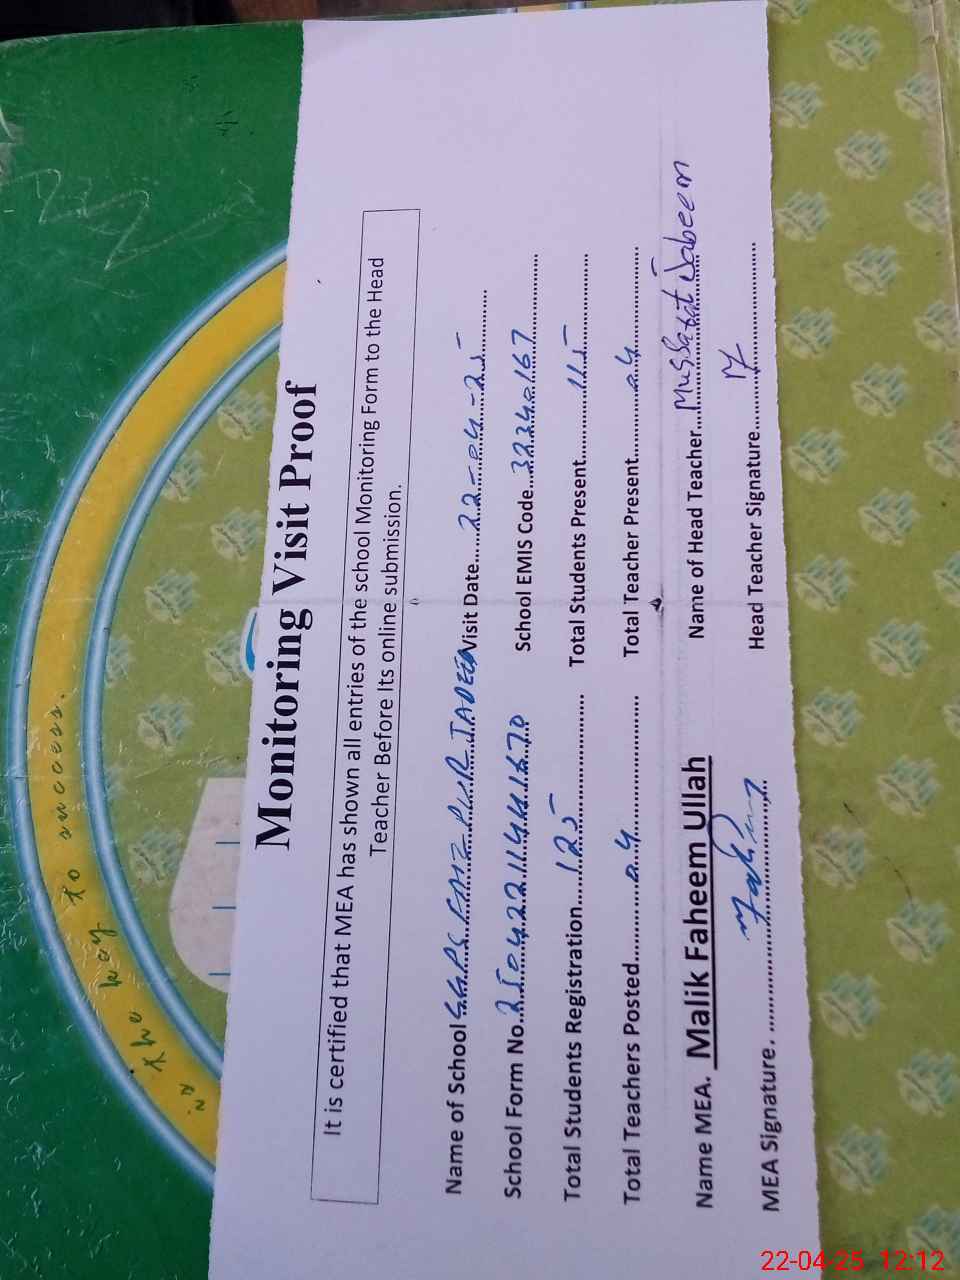 Monitoring Visit Proof
It is certified that MEA has shown all entries of the school Monitoring Form to the Head
Teacher Before Its online submission.
Name of School GGPS PUR JADEED Visit Date.....22-04-25
School Form No...25042211441670 School EMIS Code...32340167
Total Students Registration.....125 Total Students Present.........115
Total Teachers Posted..........04 Total Teacher Present.........04
Name MEA. Malik Faheem Ullah Name of Head Teacher...Mussarat Jabeen
MEA Signature. Head Teacher Signature
is the key to success.
22-04-25 12:12